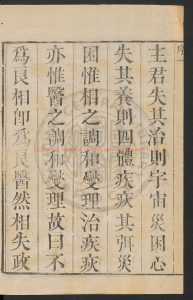 主君失其治則宇宙災困心
失其養則四體疾疢其弭災
困惟相之調和燮理治疾疢
亦惟醫之調和燮理故曰不
爲良相即爲良醫然相失政